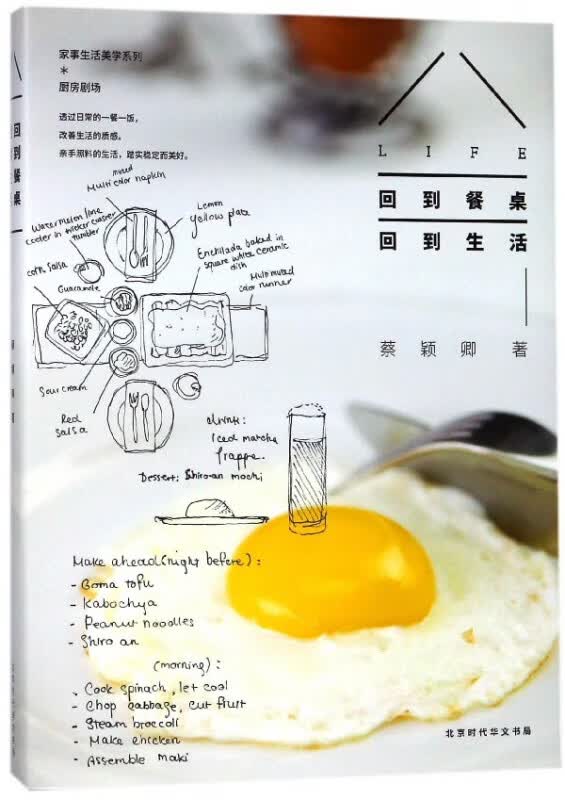 家事生活美学系列
*
厨房剧场
透过日常的一餐一饭，
改善生活的质感。
亲手照料的生活，踏实稳定而美好。
LIFE
回到餐桌
回到生活
蔡颖卿 著
回到餐桌
mixed
Multi color napkin
Watermelon lime
cooler in thicker coaster
tumbler
Lemon
yellow plate
corn salsa
Guacamole
Enchilada baked in
square white ceramic
dish
Multi muted
color runner
Sour cream
Red
salsa
drink:
Iced matcha
frappe.
Dessert: Shiro-an mochi
Make ahead (night before):
- Goma tofu
- Kabochya
- Peanut noodles
- Shiro an
(morning):
- Cook spinach, let cool
- Chop cabbage, cut fruit
- Steam broccoli
- Make chicken
- Assemble maki
北京时代华文书局